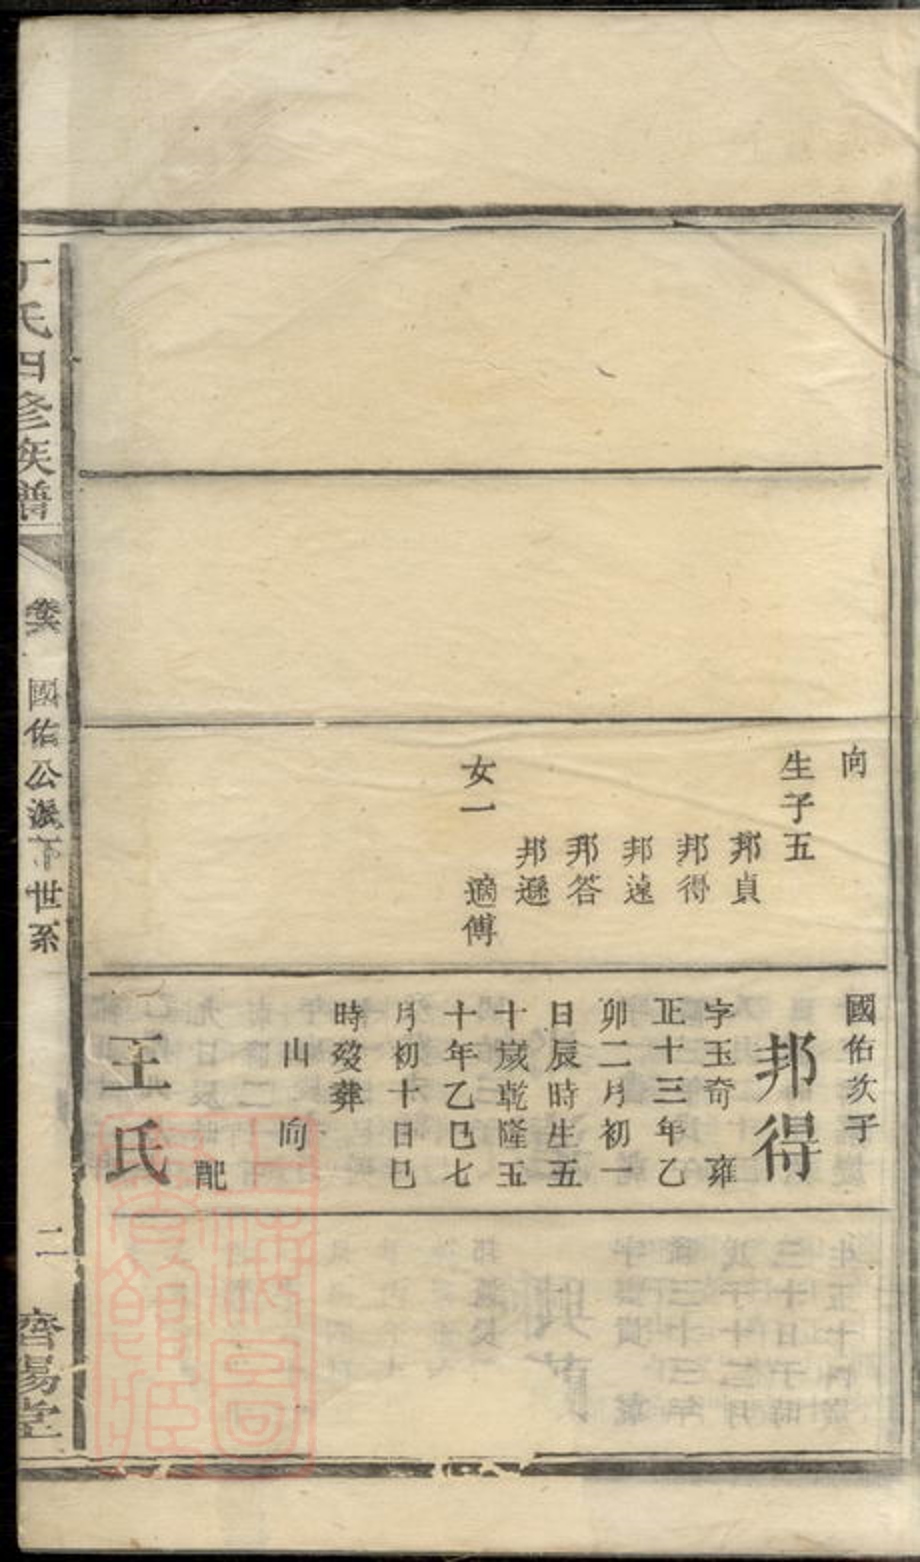 向
生子五
邦貞
邦得
邦遠
邦答
邦遜
女一 適傅
國佑次子
邦得
字玉奇 雍
正十三年乙
卯二月初一
日辰時生五
十嵗乾隆五
十年乙巳七
月初十日巳
時歿葬
山 向
配
王氏
丁氏四修族譜
國佑公派下世系
二
齊易堂